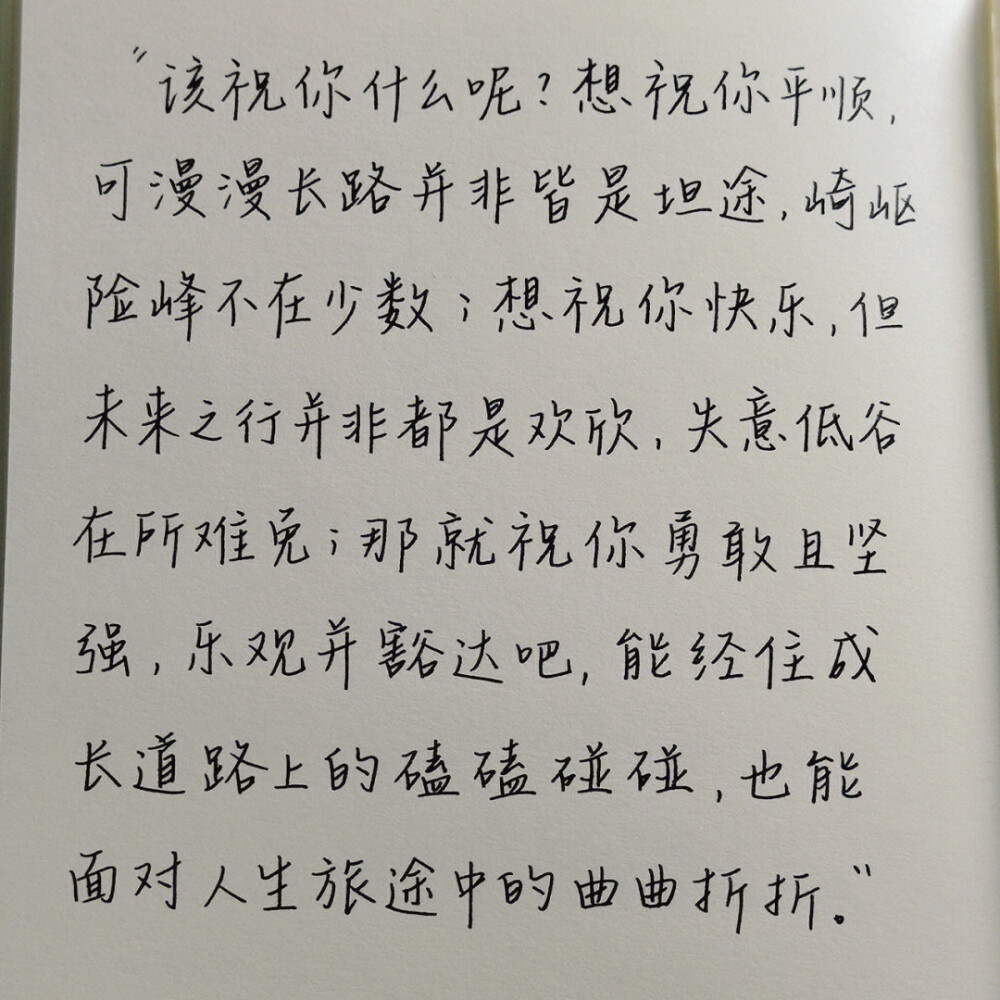 “该祝你什么呢？想祝你平顺，
可漫漫长路并非皆是坦途，崎岖
险峰不在少数；想祝你快乐，但
未来之行并非都是欢欣，失意低谷
在所难免；那就祝你勇敢且坚
强，乐观并豁达吧，能经住成
长道路上的磕磕碰碰，也能
面对人生旅途中的曲曲折折。”